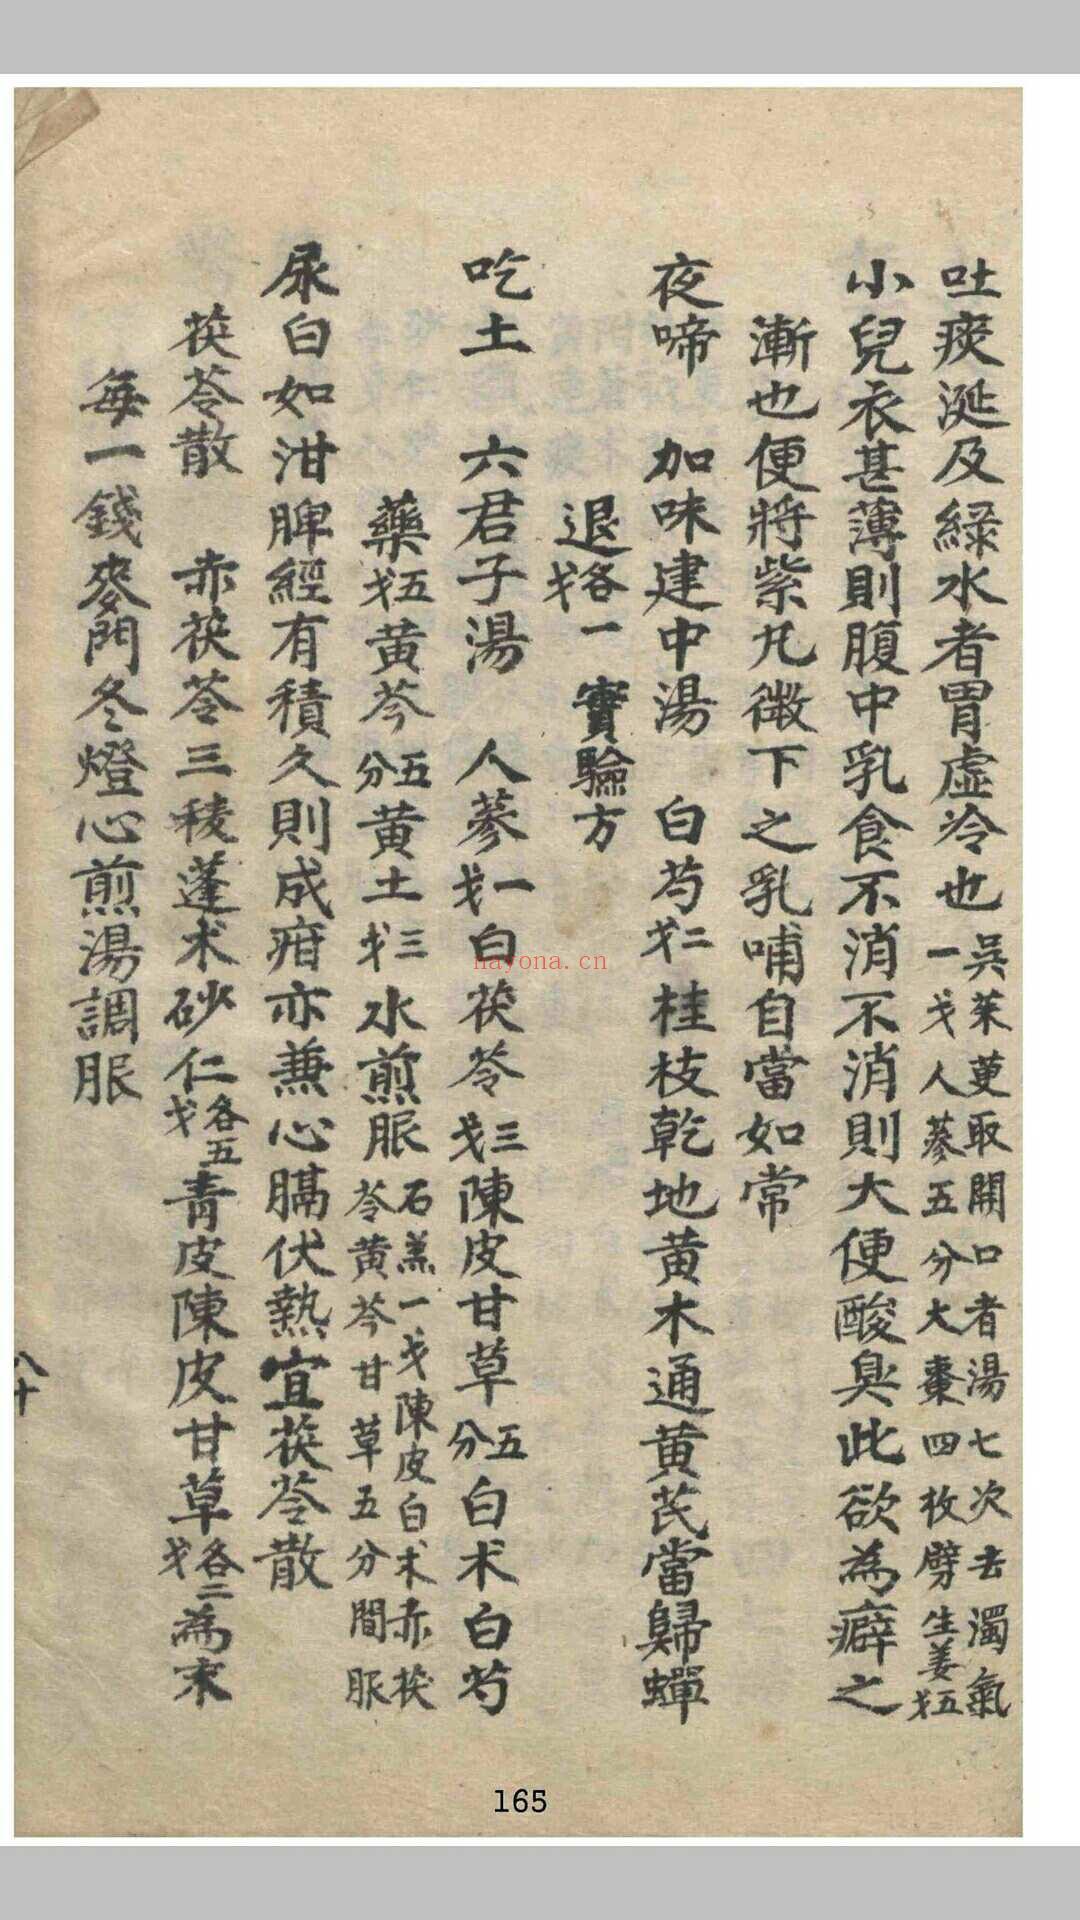 吐痰涎及綠水者胃虛冷也吳茱萸取開口者湯七次去濁氣一戈人蔘五分大棗四枚劈生姜五戈
小兒衣甚薄則腹中乳食不消不消則大便酸臭此欲為癖之
漸也便將紫丸微下之乳哺自當如常
夜啼 加味建中湯 白芍二戈桂枝乾地黃木通黃芪當歸蟬
退各一戈 實驗方
吃土 六君子湯 人蔘一戈白茯苓三戈陳皮甘草五分白朮白芍
藥五戈黃芩五分黃土三戈水煎服石羔一戈陳皮白朮赤茯苓黃芩甘草五分間服
尿白如泔脾經有積久則成疳亦兼心膈伏熱宜茯苓散
茯苓散 赤茯苓三稜蓬朮砂仁各五戈青皮陳皮甘草各二戈為末
每一錢麥門冬燈心煎湯調服
八十
165
nayona.cn